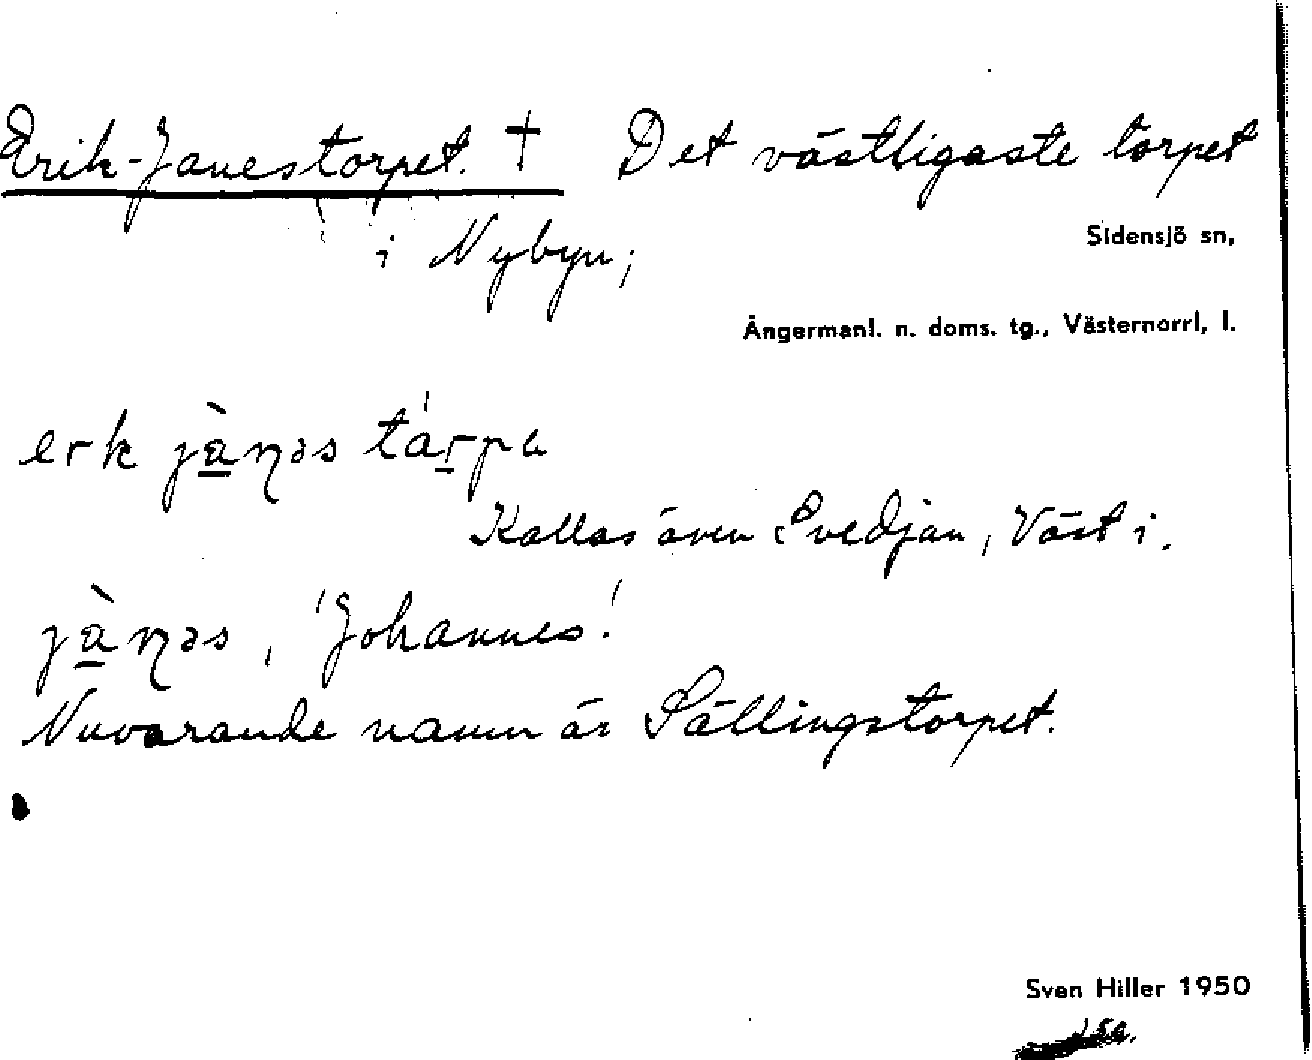 Erik-Janestorpet. † Det västligaste torpet
Sidensjö sn,
i Nybyn;
Ångermanl. n. doms. tg., Västernorrl. l.
erk jànəs tárpa
Kallas även Svedjan, Väst i.
jànəs, 'Johannes'.
Nuvarande namn är Sällingstorpet.
Sven Hiller 1950